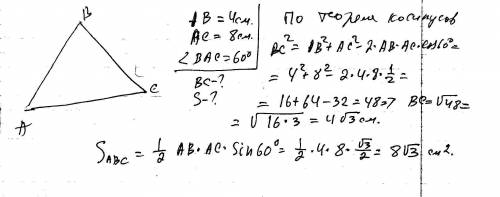 B
A
C
AB = 4см.
AC = 8см.
∠BAC = 60°
BC - ?
S - ?
По теореме косинусов
BC² = AB² + AC² - 2·AB·AC·cos60° =
= 4² + 8² - 2·4·8·1/2 =
= 16 + 64 - 32 = 48 => BC = √48 =
= √16·3 = 4√3 см.
S_ABC = 1/2 AB·AC·Sin60° = 1/2·4·8·√3/2 = 8√3 см2.